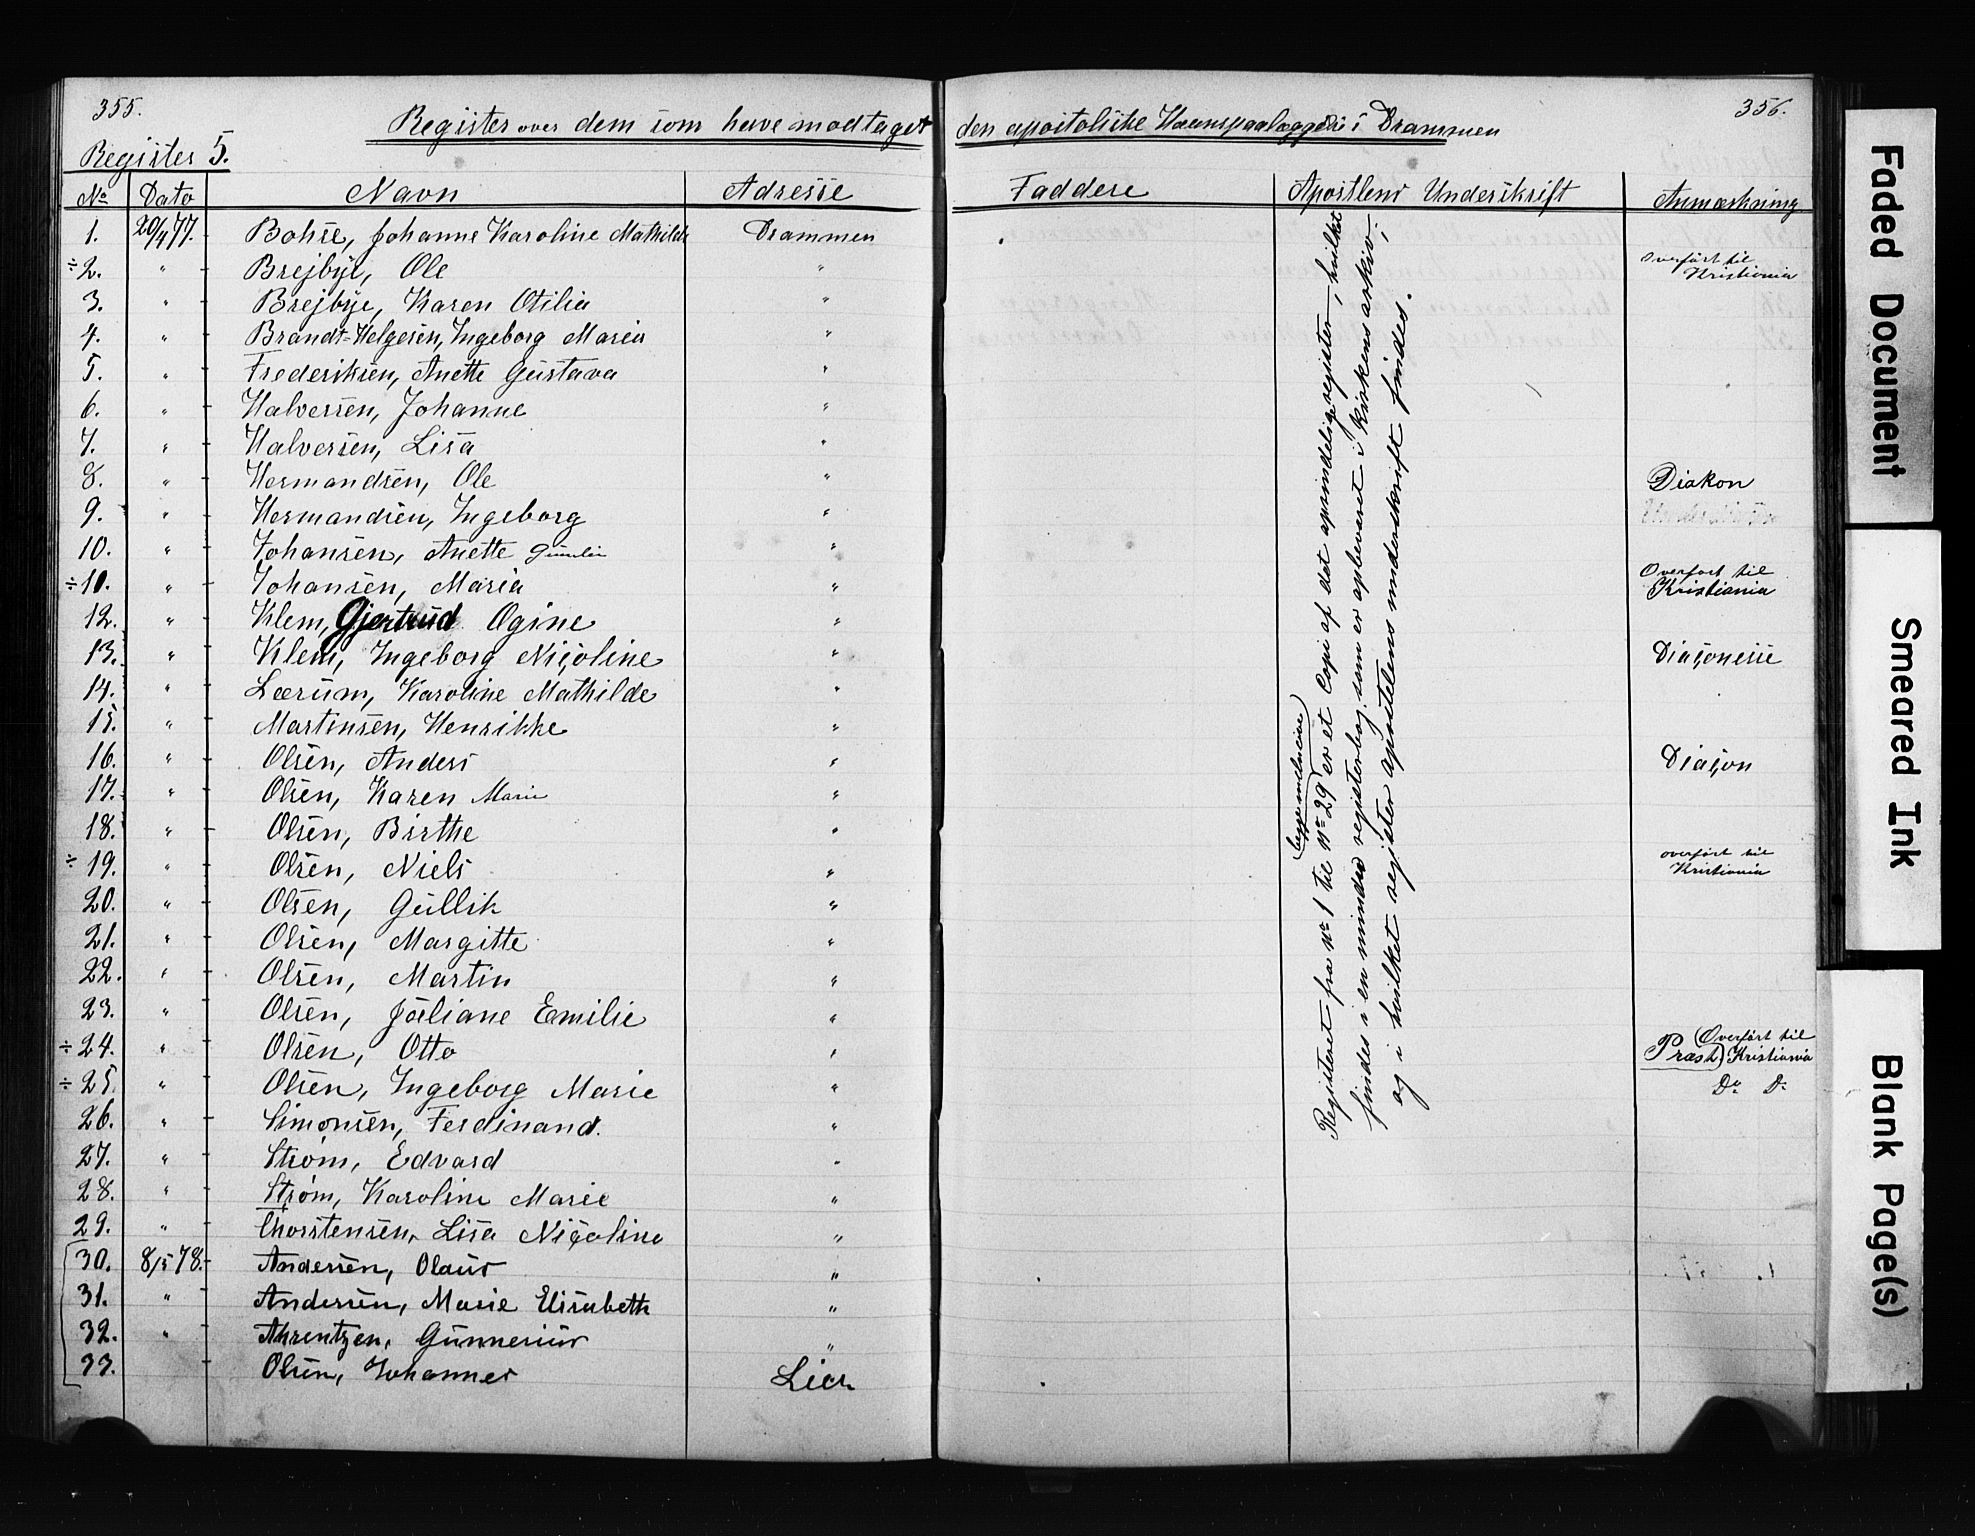 355.
Register over dem som have modtaget den apostoliske Haandspaalæggelse i Drammen
356.
Register 5.
No Dato Navn Adresse Faddere Apostlens Underskrift Anmærkning
1. 20/4 77. Bohse, Johanne Karoline Mathilde Drammen
÷2. " Brejbye, Ole " Overført til Kristiania
3. " Brejbye, Karen Otilia "
4. " Brandt=Helgesen, Ingeborg Maria "
5. " Frederiksen, Anette Gustava "
6. " Halversen, Johanne "
7. " Halversen, Lisa "
8. " Hermandsen, Ole " Diakon
9. " Hermandsen, Ingeborg "
10. " Johansen, Anette "
÷10. " Johansen, Maria " Overført til Kristiania
12. " Klem, Gjertrud Ogine "
13. " Klem, Ingeborg Nicoline " Diaconesse
14. " Lærum, Karoline Mathilde "
15. " Martinsen, Henrikke "
16. " Olsen, Anders " Diacon
17. " Olsen, Karen Marie "
18. " Olsen, Birthe "
÷19. " Olsen, Niels " overført til Kristiania
20. " Olsen, Gullik "
21. " Olsen, Margitte "
22. " Olsen, Martin "
23. " Olsen, Juliane Emilie "
÷24. " Olsen, Otto " Præst (Overført til Kristiania
÷25. " Olsen, Ingeborg Marie " Do Do
26. " Simonsen, Ferdinand. "
27. " Strøm, Edvard "
28. " Strøm, Karoline Marie "
29. " Thorstensen, Lisa Nicoline "
30. 8/5 78. Andersen, Olaus "
31. " Andersen, Marie Elisabeth "
32. " Ahrentzen, Gunnerius "
33. Olsen, Johannes Lier
Registeret fra No 1 til No 29 (begge inclusive) er et Copi af det oprindelige register, hvilket
findes i en mindre registerbog som er opbevaret i Kirkens arkiv;
og i hvilket register apostelens underskrift findes.
Faded Document
Smeared Ink
Blank Page(s)